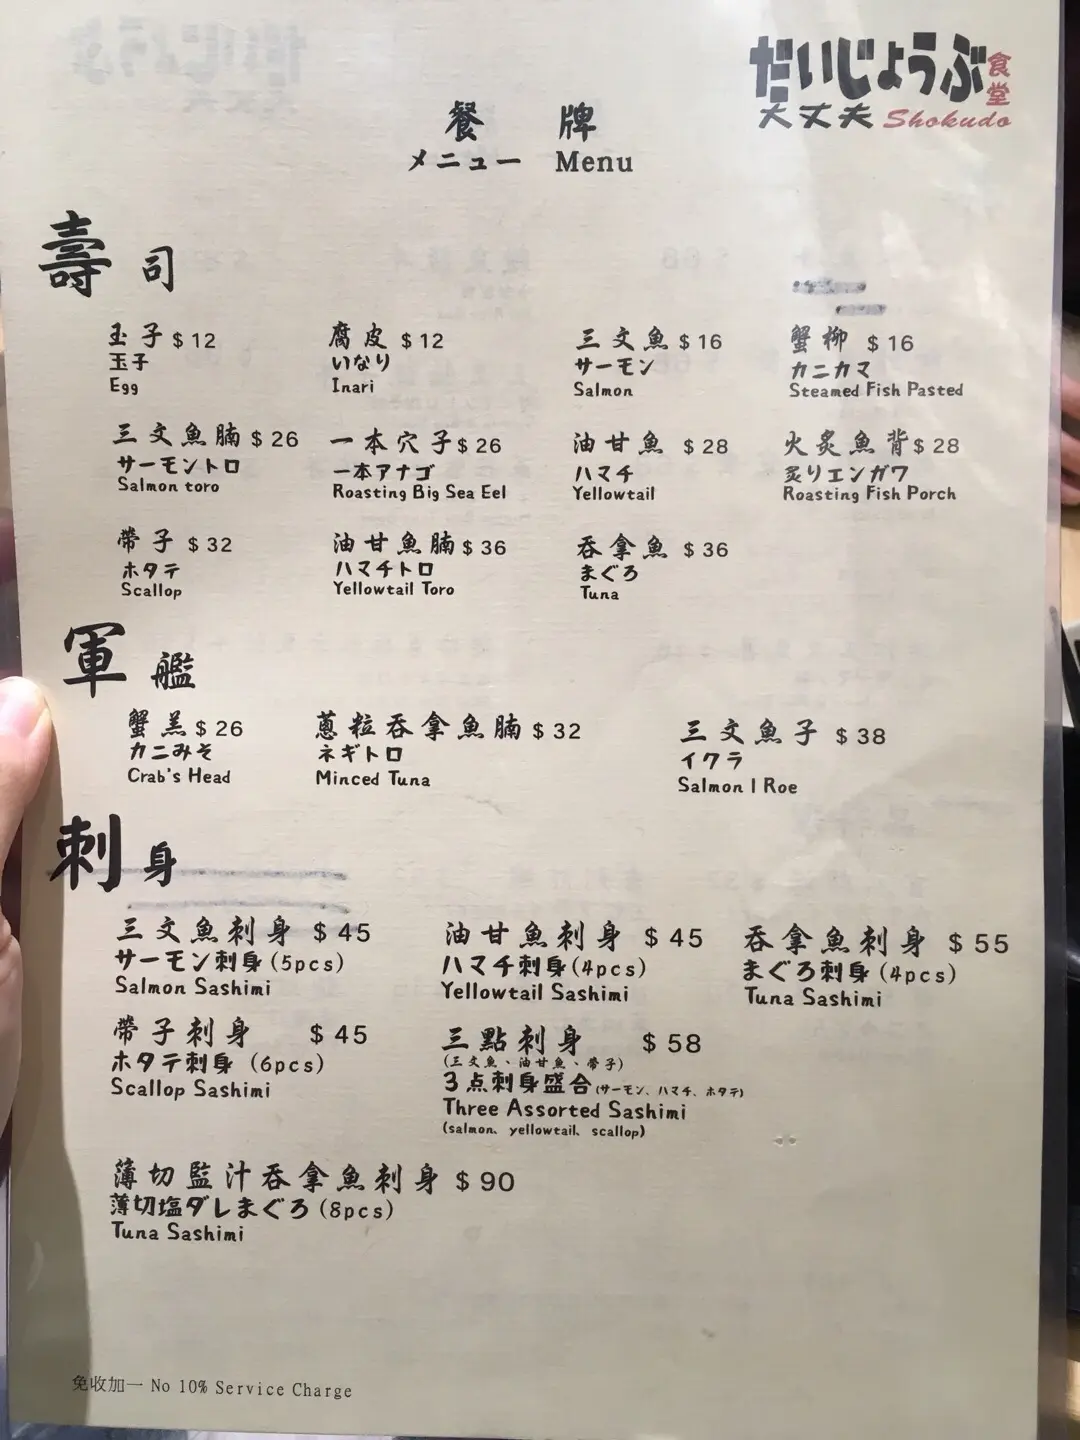 だいじょうぶ食堂
大丈夫 Shokudo
餐牌
メニュー Menu
壽司
玉子 $12
玉子
Egg
腐皮 $12
いなり
Inari
三文魚 $16
サーモン
Salmon
蟹柳 $16
カニカマ
Steamed Fish Pasted
三文魚腩 $26
サーモントロ
Salmon toro
一本穴子 $26
一本アナゴ
Roasting Big Sea Eel
油甘魚 $28
ハマチ
Yellowtail
火炙魚背 $28
炙りエンガワ
Roasting Fish Porch
帶子 $32
ホタテ
Scallop
油甘魚腩 $36
ハマチトロ
Yellowtail Toro
吞拿魚 $36
まぐろ
Tuna
軍艦
蟹羔 $26
カニみそ
Crab's Head
蔥粒吞拿魚腩 $32
ネギトロ
Minced Tuna
三文魚子 $38
イクラ
Salmon I Roe
刺身
三文魚刺身 $45
サーモン刺身 (5pcs)
Salmon Sashimi
油甘魚刺身 $45
ハマチ刺身(4pcs)
Yellowtail Sashimi
吞拿魚刺身 $55
まぐろ刺身 (4pcs)
Tuna Sashimi
帶子刺身 $45
ホタテ刺身 (6pcs)
Scallop Sashimi
三點刺身 $58
(三文魚、油甘魚、帶子)
3点刺身盛合(サーモン、ハマチ、ホタテ)
Three Assorted Sashimi
(salmon、yellowtail、scallop)
薄切監汁吞拿魚刺身 $90
薄切塩ダレまぐろ (8pcs)
Tuna Sashimi
免收加一 No 10% Service Charge